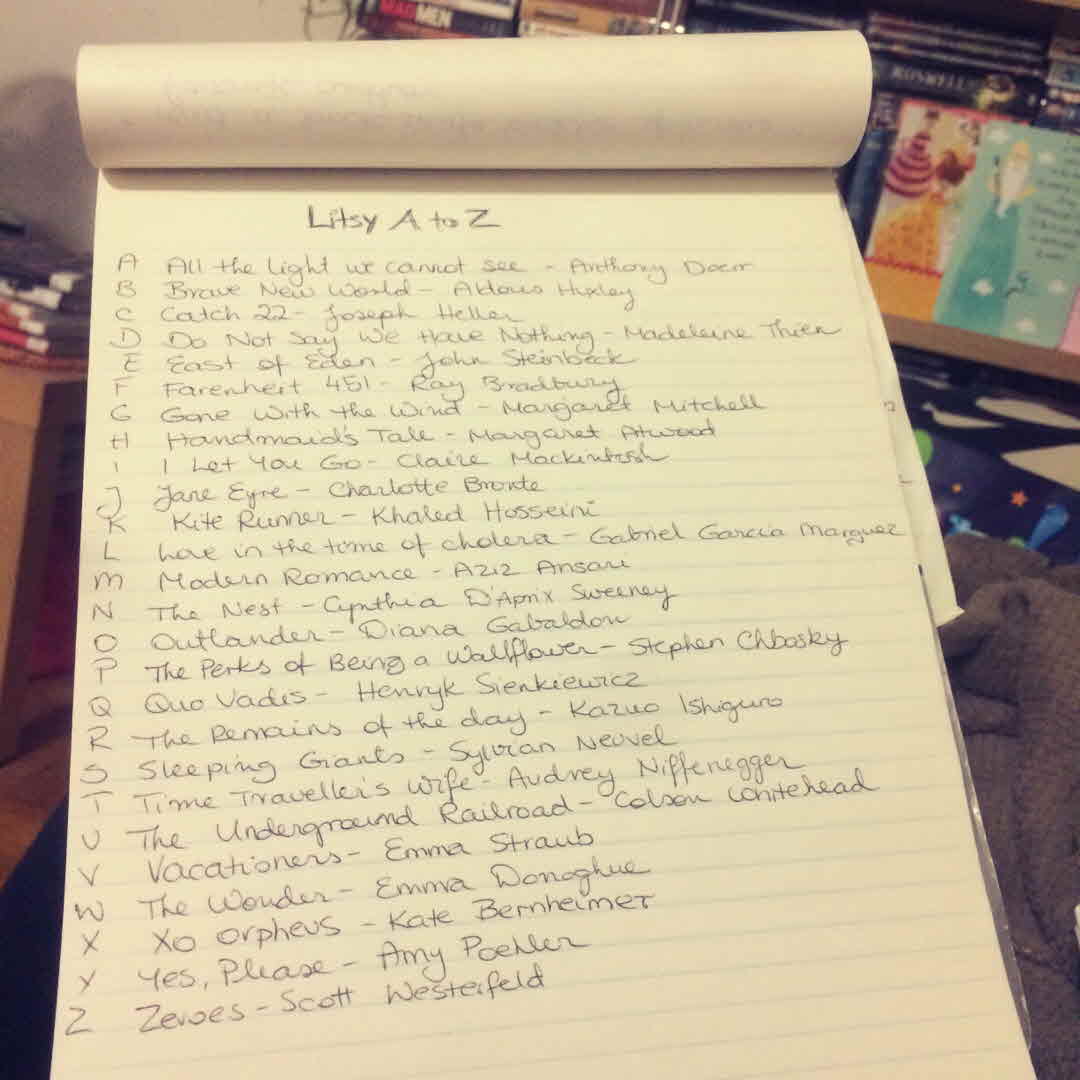 MADMEN
ROSWELL
Litsy A to Z
A All the light we cannot see - Anthony Doerr
B Brave New World - Aldous Huxley
C Catch 22 - Joseph Heller
D Do Not Say We Have Nothing - Madeleine Thien
E East of Eden - John Steinbeck
F Farenheit 451 - Ray Bradbury
G Gone With the Wind - Margaret Mitchell
H Handmaid's Tale - Margaret Atwood
I I Let You Go - Claire Mackintosh
J Jane Eyre - Charlotte Bronte
K Kite Runner - Khaled Hosseini
L Love in the time of cholera - Gabriel Garcia Marquez
M Modern Romance - Aziz Ansari
N The Nest - Cynthia D'Aprix Sweeney
O Outlander - Diana Gabaldon
P The Perks of Being a Wallflower - Stephen Chbosky
Q Quo Vadis - Henryk Sienkiewicz
R The Remains of the day - Kazuo Ishiguro
S Sleeping Giants - Sylvian Neuvel
T Time Traveller's Wife - Audrey Niffenegger
U The Underground Railroad - Colson Whitehead
V Vacationers - Emma Straub
W The Wonder - Emma Donoghue
X Xo Orpheus - Kate Bernheimer
Y Yes, Please - Amy Poehler
Z Zeroes - Scott Westerfeld